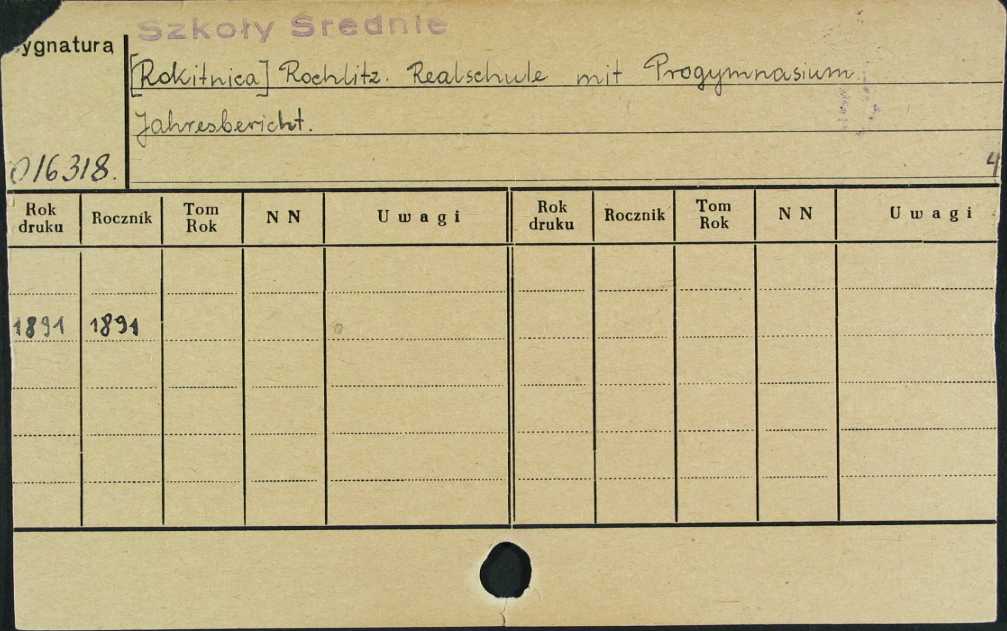 Szkoły Średnie
ygnatura
[Rokitnica] Rochlitz. Realschule mit Progymnasium.
Jahresbericht.
016318.
4
Rok druku Rocznik Tom Rok N N Uwagi Rok druku Rocznik Tom Rok N N Uwagi
1891 1891